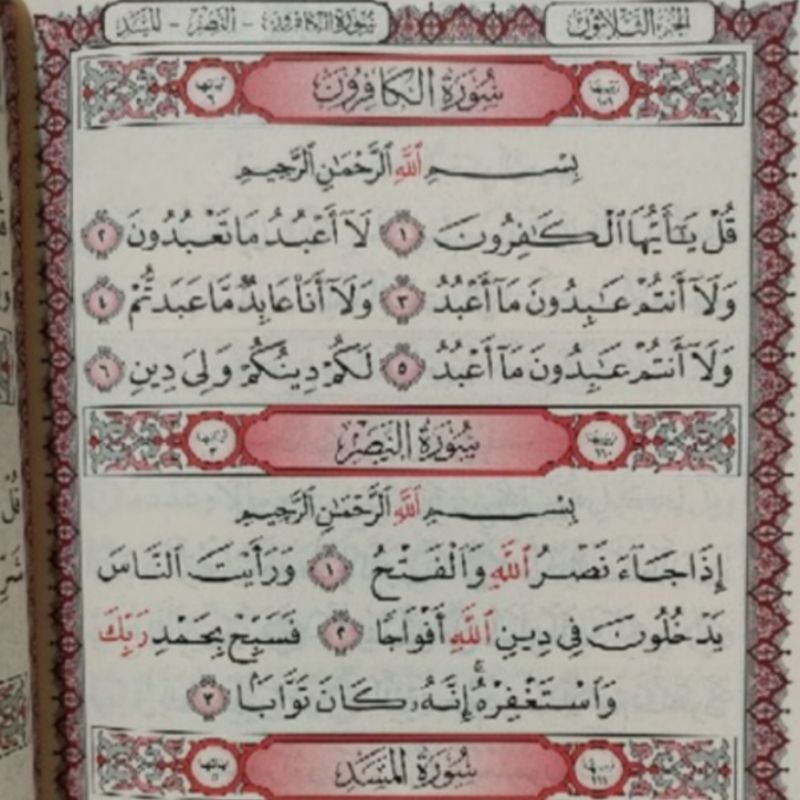 الجزء الثلاثون
سورة الكافرون - النصر - المسد
سُورَةُ الْكَافِرُونَ
بِسْمِ ٱللَّهِ ٱلرَّحْمَٰنِ ٱلرَّحِيمِ
قُلْ يَٰٓأَيُّهَا ٱلْكَٰفِرُونَ ١ لَآ أَعْبُدُ مَا تَعْبُدُونَ ٢
وَلَآ أَنتُمْ عَٰبِدُونَ مَآ أَعْبُدُ ٣ وَلَآ أَنَا۠ عَابِدٌ مَّا عَبَدتُّمْ ٤
وَلَآ أَنتُمْ عَٰبِدُونَ مَآ أَعْبُدُ ٥ لَكُمْ دِينُكُمْ وَلِىَ دِينِ ٦
سُورَةُ النَّصْرِ
بِسْمِ ٱللَّهِ ٱلرَّحْمَٰنِ ٱلرَّحِيمِ
إِذَا جَآءَ نَصْرُ ٱللَّهِ وَٱلْفَتْحُ ١ وَرَأَيْتَ ٱلنَّاسَ
يَدْخُلُونَ فِى دِينِ ٱللَّهِ أَفْوَاجًا ٢ فَسَبِّحْ بِحَمْدِ رَبِّكَ
وَٱسْتَغْفِرْهُ إِنَّهُۥ كَانَ تَوَّابًۢا ٣
سُورَةُ الْمَسَدِ